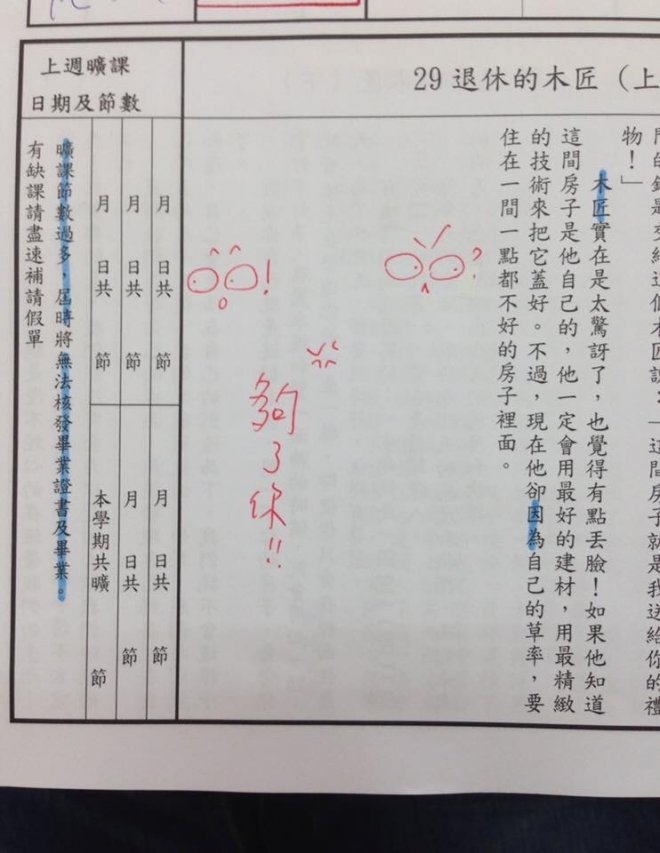 29 退休的木匠（上
物！」
木匠實在是太驚訝了，也覺得有點丟臉！如果他知道
這間房子是他自己的，他一定會用最好的建材，用最精緻
的技術來把它蓋好。不過，現在他卻因為自己的草率，要
住在一間一點都不好的房子裡面。
?
!
夠了你!!
上週曠課
日期及節數
月 日共 節
月 日共 節
月 日共 節
月 日共 節
月 日共 節
本學期共曠 節
曠課節數過多，屆時將無法核發畢業證書及畢業。
有缺課請盡速補請假單